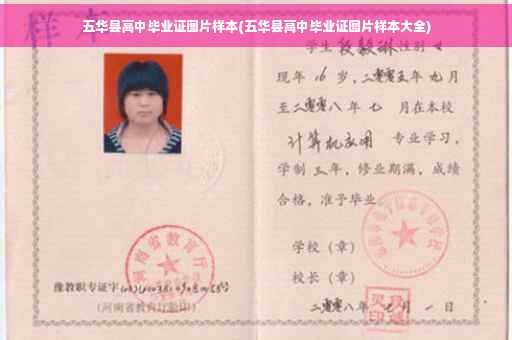 五华县高中毕业证图片样本(五华县高中毕业证图片样本大全)
样本
学生 段毅琳 性别 女
现年 16 岁，二零零五年 九月
至二零零八年 七 月在本校
计算机应用 专业学习，
学制 三年，修业期满，成绩
合格，准予毕业
学校（章）
校长（章）
二零零八年 月 一 日
河南省教育厅
豫教职专证字
(河南省教育厅验印)